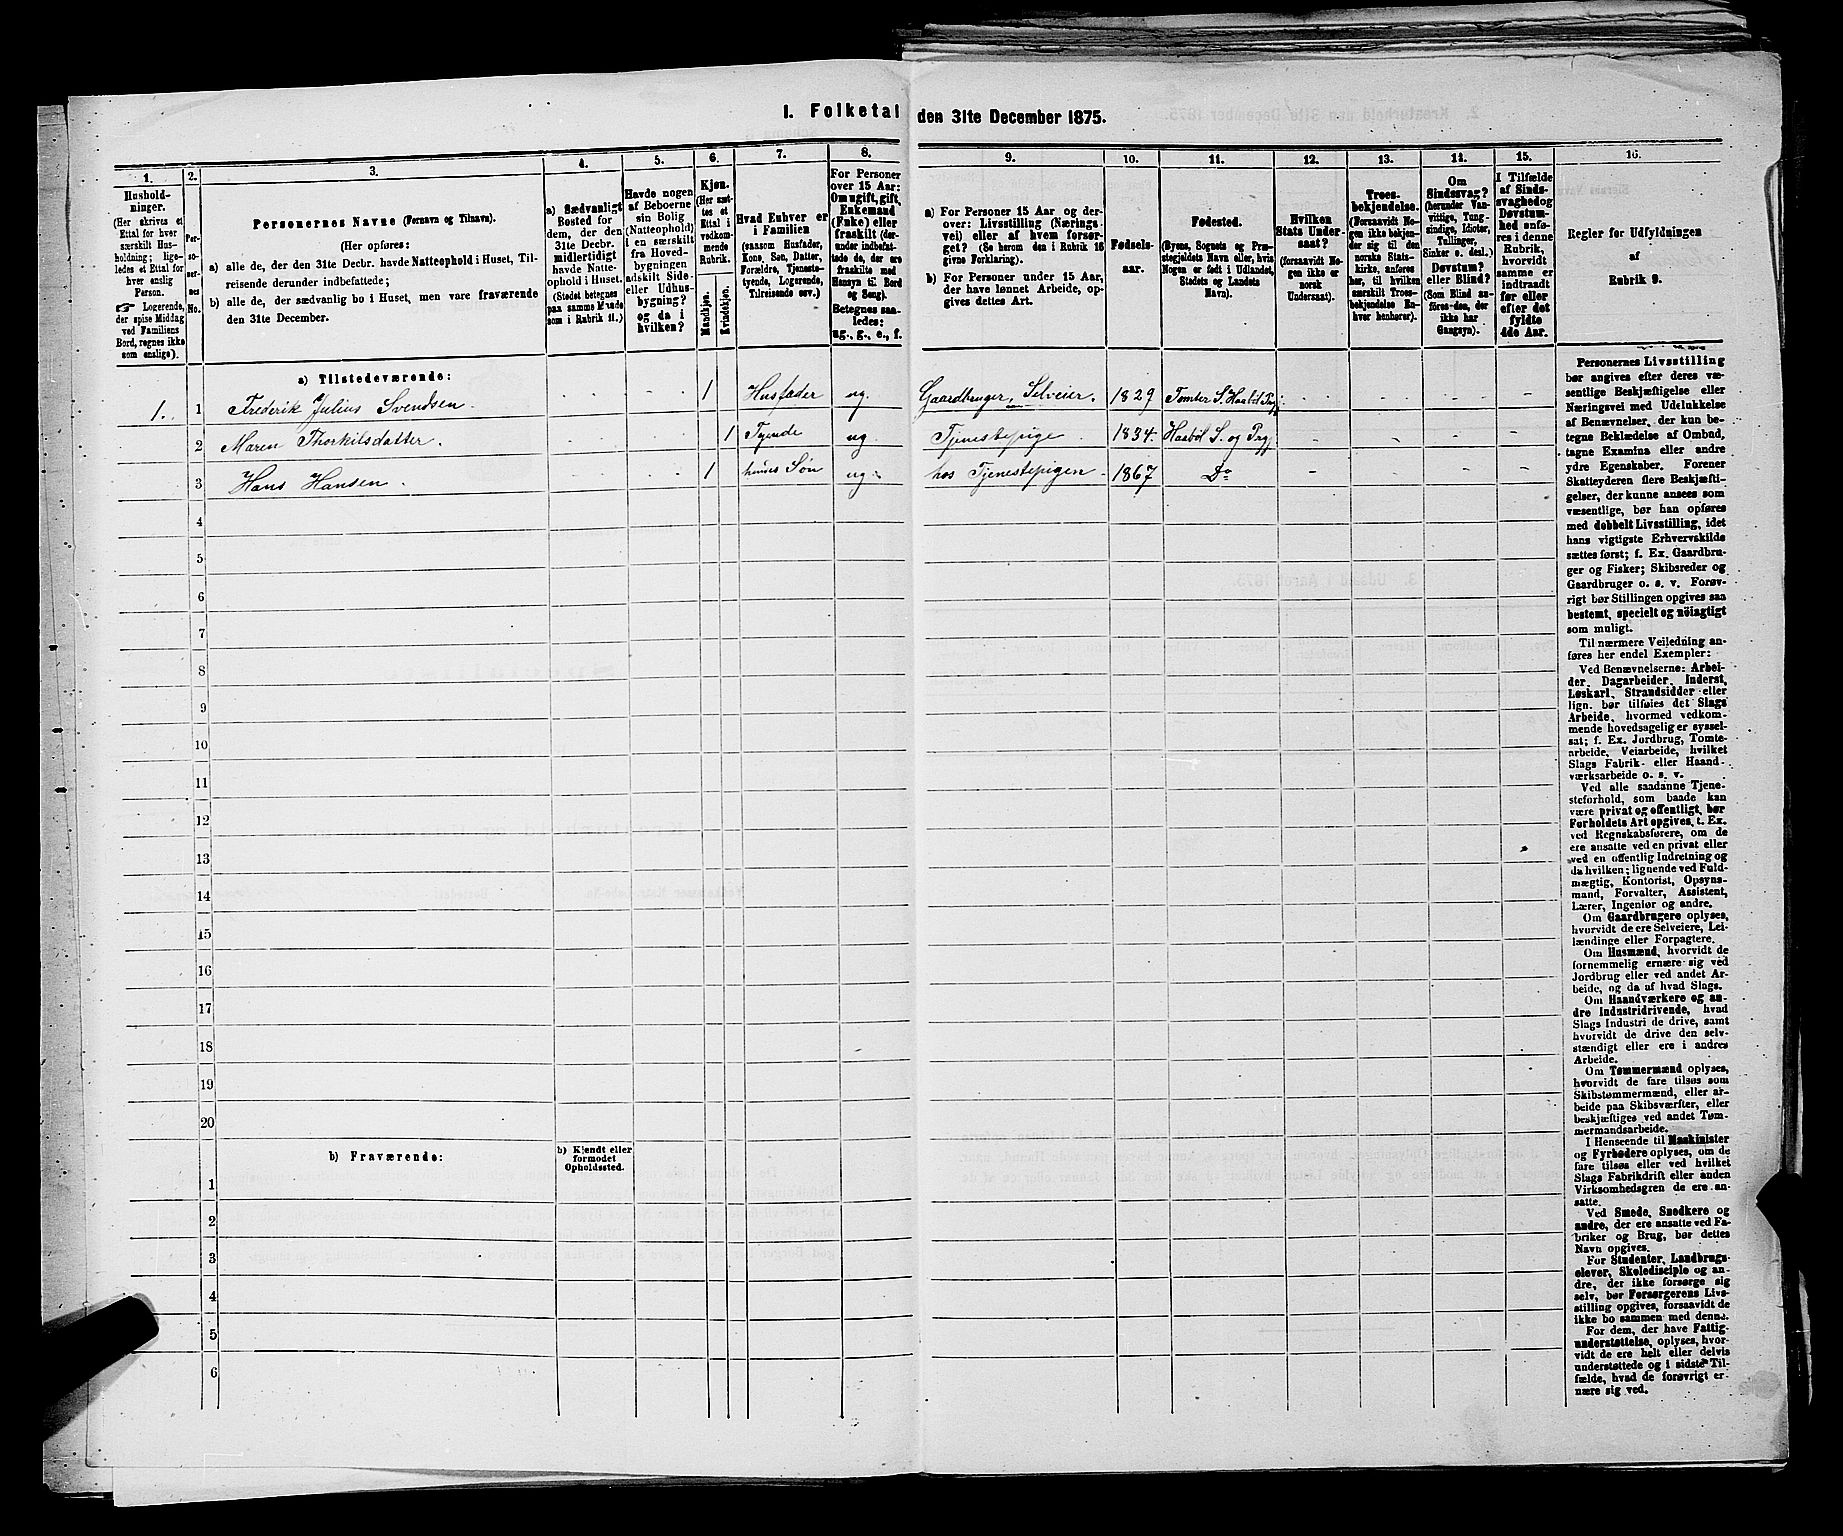 1. Folketal den 31te December 1875.
1.
Hushold-
ninger.
(Her skrives et
Ettal for hver
særskilt Hus-
holdning; lige-
ledes et Ettal for
hver enslig
Person.
☞ Logerende,
der spise Middag
ved Familiens
Bord, regnes ikke
som enslige).
2.
Per-
so-
ner-
nes
No.
3.
Personernes Navne (Fornavn og Tilnavn).
(Her opføres:
a) alle de, der den 31te Decbr. havde Natteophold i Huset, Til-
reisende derunder indbefattede;
b) alle de, der sædvanlig bo i Huset, men vare fraværende
den 31te December.
4.
a) Sædvanligt
Bosted for
dem, der den
31te Decbr.
midlertidigt
havde Natte-
ophold i Huset.
(Stedet betegnes
paa samme Maade
som i Rubrik 11.)
5.
Havde nogen
af Beboerne
sin Bolig
(Natteophold)
i en særskilt
fra Hoved-
bygningen
adskilt Side-
eller Udhus-
bygning?
og da i
hvilken?
6.
Kjøn.
(Her sæt-
tes et
Ettal i
vedkom-
mende
Rubrik.
Mandkjøn.
Kvindekjøn.
7.
Hvad Enhver er
i Familien
(saasom Husfader,
Kone, Søn, Datter,
Forældre, Tjeneste-
tyende, Logerende,
Tilreisende osv.)
8.
For Personer
over 15 Aar:
Om ugift, gift,
Enkemand
(Enke) eller
fraskilt (der-
under indbefat-
tede de, der ere
fraskilte med
Hensyn til Bord
og Seng).
Betegnes saa-
ledes:
ug., g., e., f.
9.
a) For Personer 15 Aar og der-
over: Livsstilling (Nærings-
vei) eller af hvem forsør-
get? (Se herom den i Rubrik 16
givne Forklaring).
b) For Personer under 15 Aar,
der have lønnet Arbeide, op-
gives dettes Art.
10.
Fødsels-
aar.
11.
Fødested.
(Byens, Sognets og Præ-
stegjeldets Navn eller, hvis
Nogen er født i Udlandet,
Stedets og Landets
Navn).
12.
Hvilken
Stats Under-
saat?
(forsaavidt No-
gen ikke er
norsk
Undersaat).
13.
Troes-
bekjendelse.
(Forsaavidt No-
gen ikke bekjen-
der sig til den
norske Stats-
kirke, anføres
her, til hvilken
særskilt Troes-
bekjendelse En-
hver henhører).
14.
Om
Sindssvag?
(herunder Van-
vittige, Tung-
sindige, Idioter,
Tullinger,
Sinker o. desl.)
Døvstum?
eller Blind?
(Som Blind an-
føres den, der
ikke har
Gangsyn).
15.
I Tilfælde
af Sinds-
svaghed og
Døvstum-
hed anfø-
res i denne
Rubrik,
hvorvidt
samme er
indtraadt
før eller
efter det
fyldte
4de Aar.
16.
Regler for Udfyldningen
af
Rubrik 9.
a) Tilstedeværende:
1. 1 Frederik Julius Svendsen. - - 1 Husfader ug. Gaardbruger, Selveier. 1829 Tomter S. Haabøl Prgj. - - - -
2 Maren Thorkilsdatter. - - 1 Tyende ug Tjenestepige 1834. Haabøl S. og Prgj. - - - -
3 Hans Hansen. - - 1 hendes Søn ug. hos Tjenestepigen 1867 Do - - - -
4
5
6
7
8
9
10
11
12
13
14
15
16
17
18
19
20
b) Fraværende:
b) Kjendt eller
formodet
Opholdssted.
1
2
3
4
5
6
Personernes Livsstilling
bør angives efter deres væ-
sentlige Beskjæftigelse eller
Næringsvei med Udelukkelse
af Benævnelser, der kun be-
tegne Beklædelse af Ombud,
tagne Examina eller andre
ydre Egenskaber. Forener
Skatteyderen flere Beskjæfti-
gelser, der kunne ansees som
væsentlige, bør han opføres
med dobbelt Livsstilling, idet
hans vigtigste Erhvervskilde
sættes først; f. Ex. Gaardbru-
ger og Fisker; Skibsreder og
Gaardbruger o. s. v. Forøv-
rigt bør Stillingen opgives saa
bestemt, specielt og nöiagtigt
som muligt.
Til nærmere Veiledning an-
føres her endel Exempler:
Ved Benævnelserne: Arbei-
der, Dagarbeider, Inderst,
Løskarl, Strandsidder eller
lign. bør tilføies det Slags
Arbeide, hvormed vedkom-
mende hovedsagelig er syssel-
sat; f. Ex. Jordbrug, Tomte-
arbeide, Veiarbeide, hvilket
Slags Fabrik- eller Haand-
værksarbeide o. s. v.
Ved alle saadanne Tjene-
steforhold, som baade kan
være privat og offentligt, bør
Forholdets Art opgives, t. Ex.
ved Regnskabsførere, om de
ere ansatte ved en privat eller
ved en offentlig Indretning og
da hvilken; lignende ved Fuld-
mægtig, Kontorist, Opsyns-
mand, Forvalter, Assistent,
Lærer, Ingeniør og andre.
Om Gaardbrugere oplyses,
hvorvidt de ere Selveiere, Lei-
lændinge eller Forpagtere.
Om Husmænd, hvorvidt de
fornemmelig ernære sig ved
Jordbrug eller ved andet Ar-
beide, og da af hvad Slags.
Om Haandværkere og an-
dre Industridrivende, hvad
Slags Industri de drive, samt
hvorvidt de drive den selv-
stændigt eller ere i andres
Arbeide.
Om Tømmermænd oplyses,
hvorvidt de fare tilsøs som
Skibstømmermænd, eller ar-
beide paa Skibsværfter, eller
beskjæftiges ved andet Tøm-
mermandsarbeide.
I Henseende til Maskinister
og Fyrbødere oplyses, om de
fare tilsøs eller ved hvilket
Slags Fabrikdrift eller anden
Virksomhedsgren de ere an-
satte.
Ved Smede, Snedkere og
andre, der ere ansatte ved Fa-
briker og Brug, bør dettes
Navn opgives.
For Studenter, Landbrugs-
elever, Skoledisciple og an-
dre, der ikke forsørge sig
selv, bør Forsørgerens Livs-
stilling opgives, forsaavidt de
ikke bo sammen med denne.
For dem, der have Fattig-
understøttelse, oplyses, hvor-
vidt de ere helt eller delvis
understøttede og i sidste Til-
fælde, hvad de forøvrigt er-
nære sig ved.